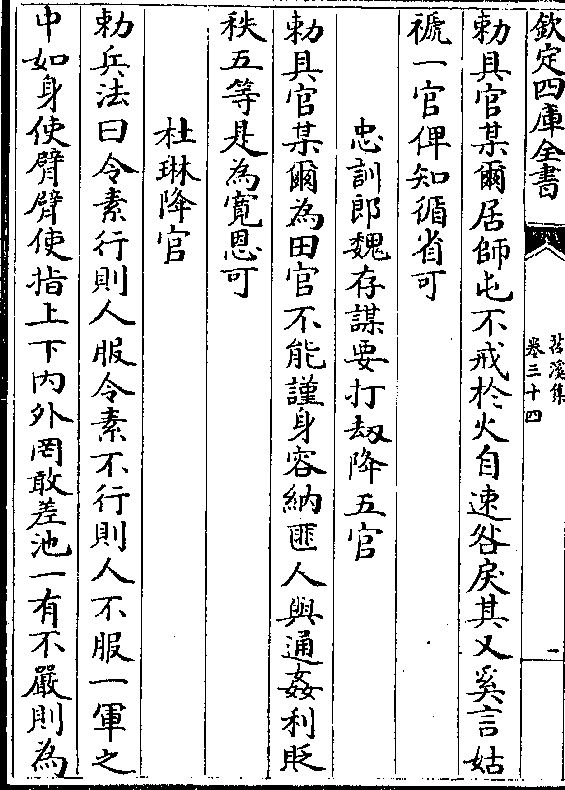 欽定四庫全書
苕溪集
卷三十四
一
勅具官某爾居師屯不戒於火自速咎戾其又奚言姑
褫一官俾知循省可
忠訓郎魏存謀要打刼降五官
勅具官某爾為田官不能謹身容納匪人與通姦利貶
秩五等是為寛恩可
杜琳降官
勅兵法曰令素行則人服令素不行則人不服一軍之
中如身使臂臂使指上下内外罔敢差池一有不嚴則為